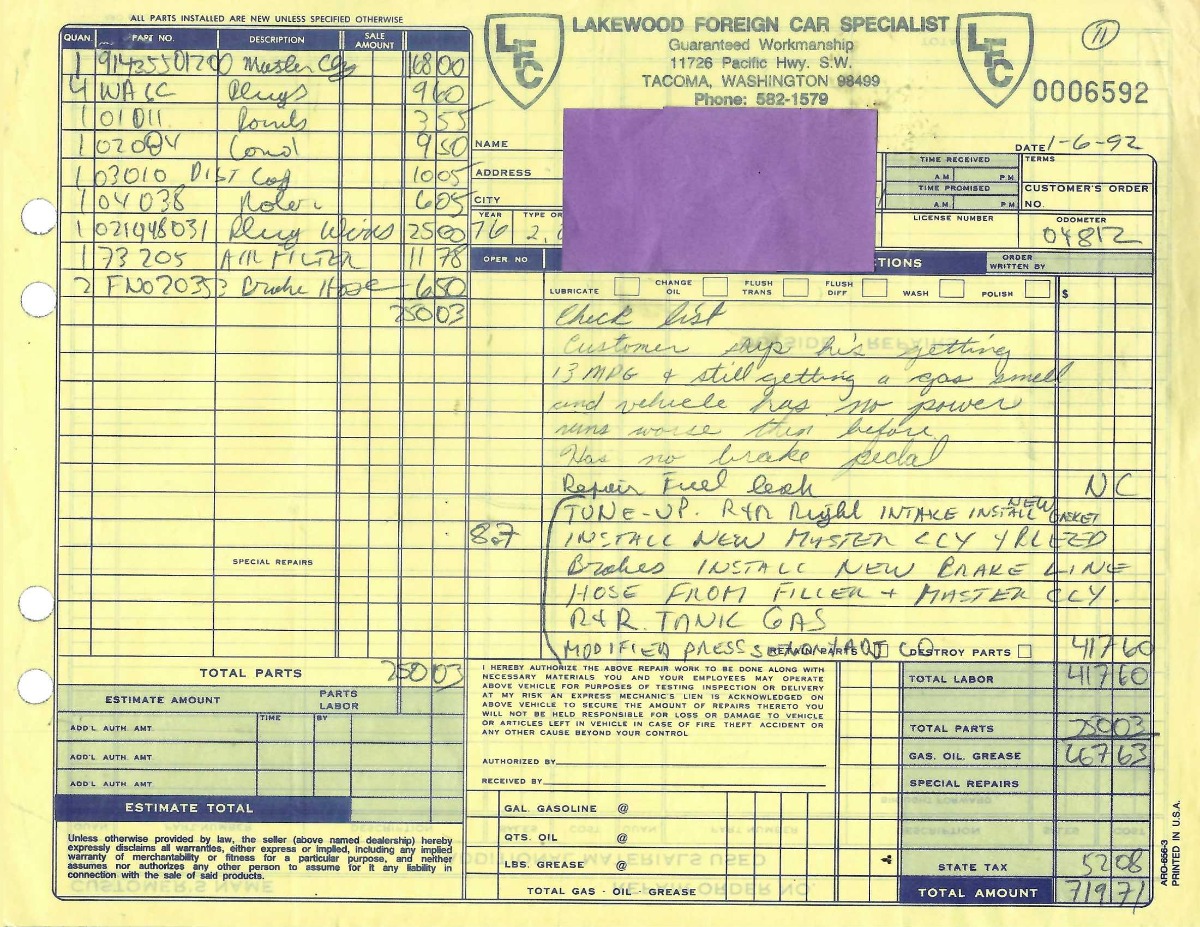 ALL PARTS INSTALLED ARE NEW UNLESS SPECIFIED OTHERWISE
QUAN. PART NO. DESCRIPTION SALE AMOUNT
1 Master Cly 168 00
4 WA6C Plugs 9 60
1 01011 Points 3 55
1 Cond 9 50
1 03010 DIST Cap 10 05
1 04038 Rotor 6 05
1 Plug Wires 25 00
1 73205 AIR FILTER 11 78
2 Brake Hose 6 50
250 03
SPECIAL REPAIRS
TOTAL PARTS 250 03
ESTIMATE AMOUNT PARTS LABOR
TIME BY
ADD'L AUTH. AMT.
ADD'L AUTH. AMT.
ADD'L AUTH. AMT.
ESTIMATE TOTAL
Unless otherwise provided by law, the seller (above named dealership) hereby
expressly disclaims all warranties, either express or implied, including any implied
warranty of merchantability or fitness for a particular purpose, and neither
assumes nor authorizes any other person to assume for it any liability in
connection with the sale of said products.
LFC
LAKEWOOD FOREIGN CAR SPECIALIST
Guaranteed Workmanship
11726 Pacific Hwy. S.W.
TACOMA, WASHINGTON 98499
Phone: 582-1579
LFC
11
0006592
NAME
DATE 1-6-92
ADDRESS
TIME RECEIVED A.M. P.M.
TERMS
TIME PROMISED A.M. P.M.
CUSTOMER'S ORDER NO.
CITY
YEAR 76 TYPE OR 2.0
LICENSE NUMBER
ODOMETER 04812
OPER. NO. CTIONS
ORDER WRITTEN BY
LUBRICATE CHANGE OIL FLUSH TRANS FLUSH DIFF WASH POLISH $
Check list
Customer says he's getting
13 MPG & still getting a gas smell
and vehicle has no power
runs worse then before
Has no brake pedal
Repair Fuel leak NC
TUNE-UP. R&R Right INTAKE INSTALL NEW GASKET
8.7 INSTALL NEW MASTER CLY & BLEED
Brakes INSTALL NEW BRAKE LINE
HOSE FROM FILLER + MASTER CLY.
R&R. TANK GAS
MODIFIED PRESS 417 60
RETAIN PARTS DESTROY PARTS
I HEREBY AUTHORIZE THE ABOVE REPAIR WORK TO BE DONE ALONG WITH
NECESSARY MATERIALS YOU AND YOUR EMPLOYEES MAY OPERATE
ABOVE VEHICLE FOR PURPOSES OF TESTING INSPECTION OR DELIVERY
AT MY RISK AN EXPRESS MECHANIC'S LIEN IS ACKNOWLEDGED ON
ABOVE VEHICLE TO SECURE THE AMOUNT OF REPAIRS THERETO YOU
WILL NOT BE HELD RESPONSIBLE FOR LOSS OR DAMAGE TO VEHICLE
OR ARTICLES LEFT IN VEHICLE IN CASE OF FIRE THEFT ACCIDENT OR
ANY OTHER CAUSE BEYOND YOUR CONTROL
AUTHORIZED BY
RECEIVED BY
GAL. GASOLINE @
QTS. OIL @
LBS. GREASE @
TOTAL GAS - OIL - GREASE
TOTAL LABOR 417 60
TOTAL PARTS 250 03
GAS. OIL. GREASE 667 63
SPECIAL REPAIRS
STATE TAX 52 08
TOTAL AMOUNT 719 71
ARO-656-3
PRINTED IN U.S.A.